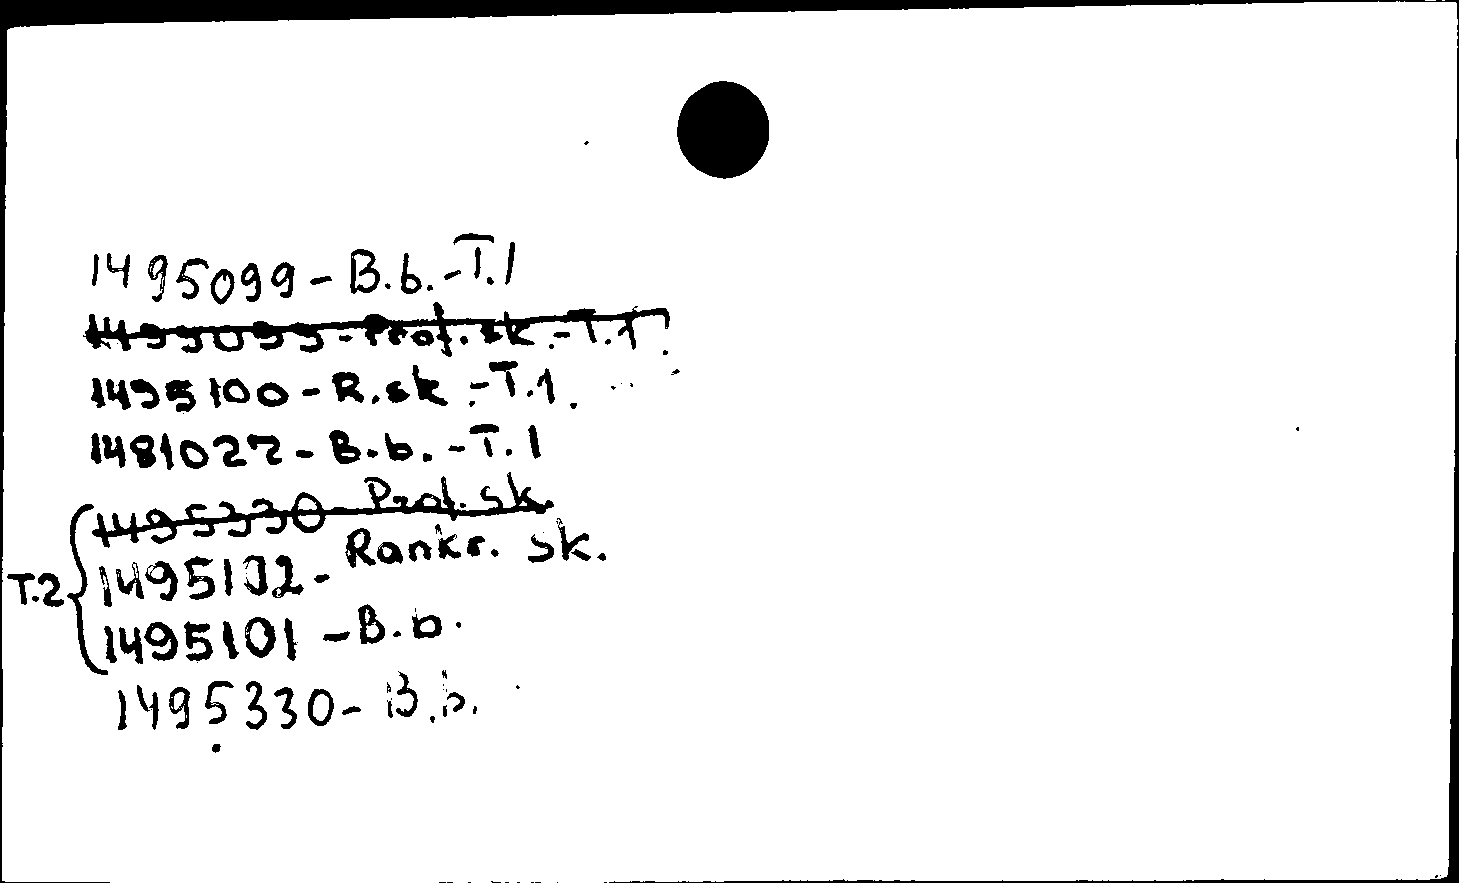 1495099 - B.b. - T.1
1495099 - Prof. sk. - T.1
1495100 - R. sk. - T.1
1481027 - B.b. - T.1
1495330 - Prof. sk.
T.2 1495102 - Rankr. sk.
1495101 - B.b.
1495330 - B.b.